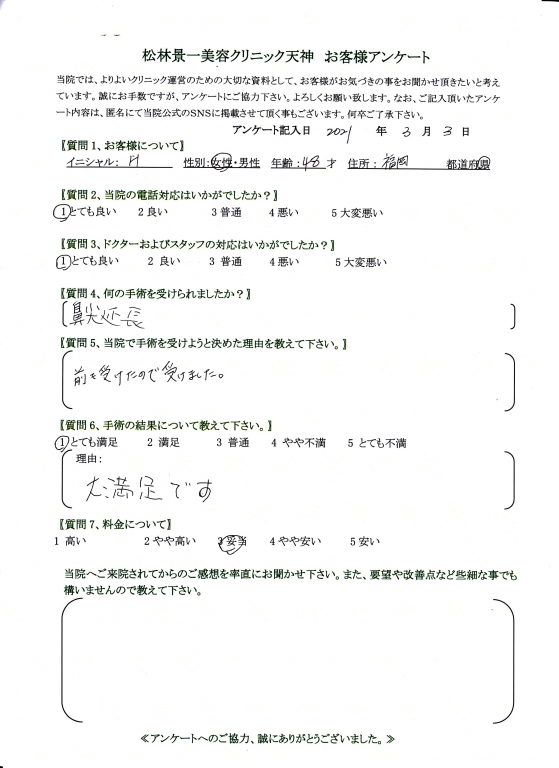 松林景一美容クリニック天神　お客様アンケート
当院では、よりよいクリニック運営のための大切な資料として、お客様がお気づきの事をお聞かせ頂きたいと考え
ています。誠にお手数ですが、アンケートにご協力下さい。よろしくお願い致します。なお、ご記入頂いたアンケ
ート内容は、匿名にて当院公式のSNSに掲載させて頂く事もございます。何卒ご了承下さい。
アンケート記入日　2021　年　3　月　3　日
〖質問1、お客様について〗
イニシャル：　H　性別：女性・男性　年齢：48才　住所：　福岡　都道府県
〖質問2、当院の電話対応はいかがでしたか？〗
1とても良い　2 良い　3 普通　4 悪い　5 大変悪い
〖質問3、ドクターおよびスタッフの対応はいかがでしたか？〗
1とても良い　2 良い　3 普通　4 悪い　5 大変悪い
〖質問4、何の手術を受けられましたか？〗
鼻尖延長
〖質問5、当院で手術を受けようと決めた理由を教えて下さい。〗
前も受けたので受けました。
〖質問6、手術の結果について教えて下さい。〗
1とても満足　2 満足　3 普通　4 やや不満　5 とても不満
理由：
大満足です
〖質問7、料金について〗
1 高い　2 やや高い　3 妥当　4 やや安い　5 安い
当院へご来院されてからのご感想を率直にお聞かせ下さい。また、要望や改善点など些細な事でも
構いませんので教えて下さい。
≪アンケートへのご協力、誠にありがとうございました。≫